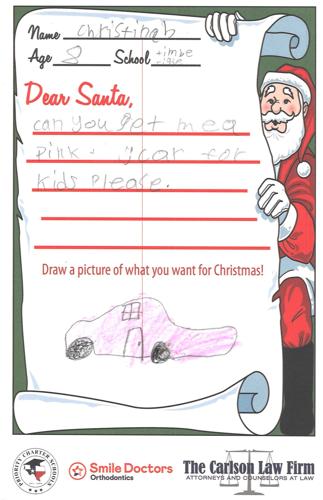 Name christinah
Age 8 School timbe
Dear Santa,
can you get me a
Pink car for
kids please.
Draw a picture of what you want for Christmas!
PRIORITY CHARTER SCHOOLS
Smile Doctors
Orthodontics
The Carlson Law Firm
ATTORNEYS AND COUNSELORS AT LAW